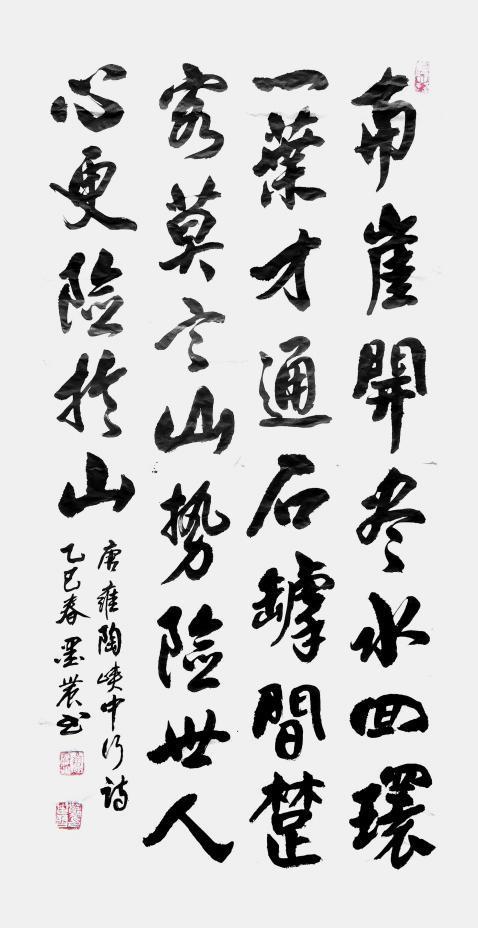 两崖開尽水回環
一葉才通石罅間楚
客莫言山势險世人
心更險於山
唐雍陶峽中行詩
乙巳春墨農书